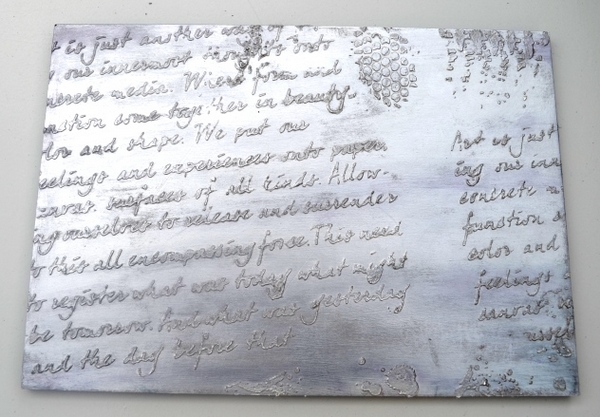 t is just another way of
our innermost thoughts onto
ncrete media. Where form and
nction come together in beauty.
lor and shape. We put our
eelings and experiences onto paper,
anvas. surfaces of all kinds. Allow-
ing ourselves to release and surrender
o this all encompassing force. This need
to register what was today what might
be tomorrow. And what was yesterday
and the day before that
Art is just
ing our inn
concrete m
function
color and
feelings
canvas.